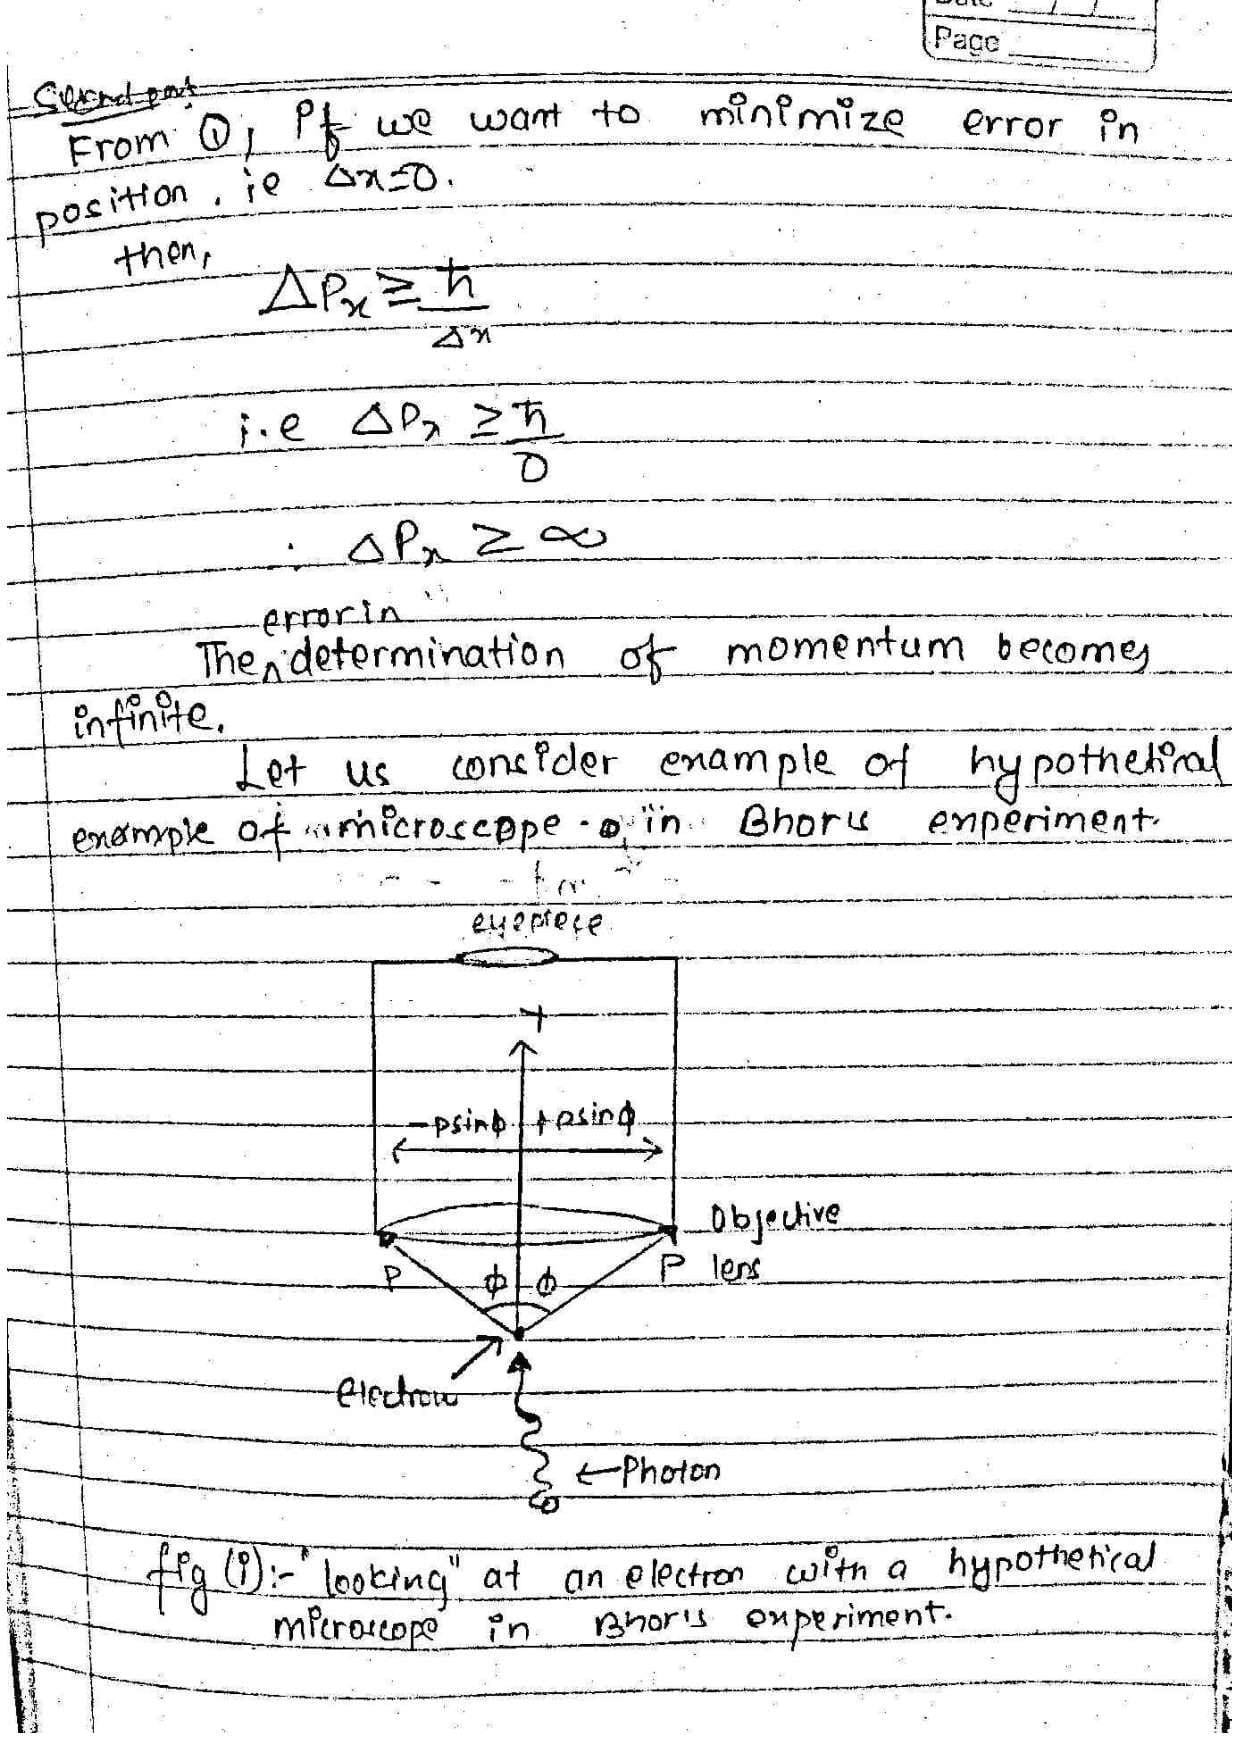 Date
Page
Second part
From ①, if we want to minimize error in
position, ie Δx=0.
then,
ΔPx ≥ ħ/Δx
i.e ΔPx ≥ ħ/0
∴ ΔPx ≥ ∞
error in
The ^ determination of momentum becomes
infinite.
Let us consider example of hypothetical
example of microscope in Bhor's experiment.
eyepiece
-psinϕ +psinϕ
Objective
P ϕ ϕ P lens
electron
←Photon
fig (i):- "looking" at an electron with a hypothetical
microscope in Bhor's experiment.